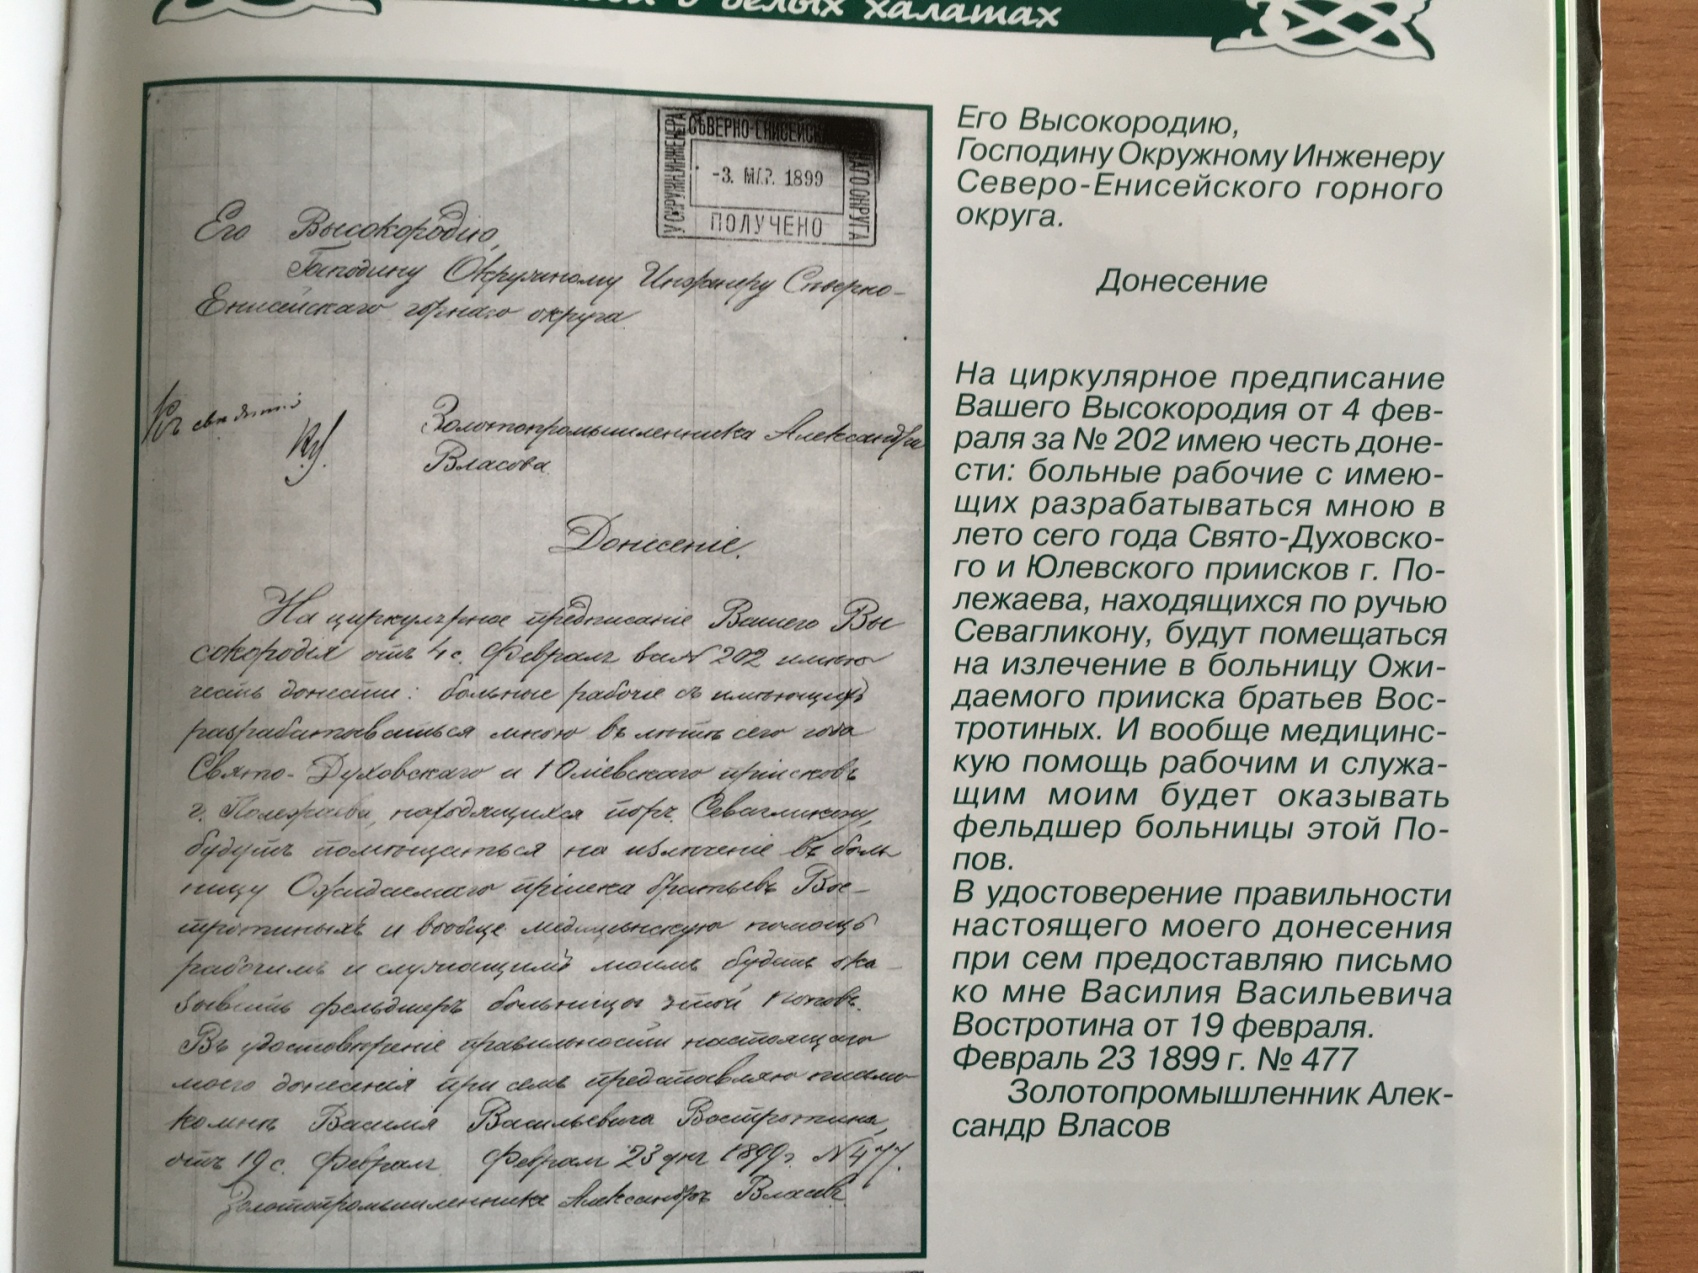 в белых халатах
СѢВЕРНО-ЕНИСЕЙСК
У ОКРУЖН. ИНЖЕНЕРА
-3. МАР. 1899
НАГО ОКРУГА
ПОЛУЧЕНО
Его Высокородію,
Господину Окружному Инженеру Сѣверно-
Енисейскаго горнаго округа.
Къ свѣдѣнію
Золотопромышленника Александра
Власова.
Донесеніе.
На циркулярное предписаніе Вашего Вы
сокородія отъ 4 с. Февраля за N 202 имѣю
честь донести: больные рабочіе съ имѣющихъ
разрабатываться мною въ лѣтѣ сего года
Свято-Духовскаго и Юліевскаго пріисковъ
г. Полежаева, находящихся по рч. Севагликону,
будутъ помѣщаться на излѣченіе въ боль
ницу Ожидаемаго пріиска братьевъ Вос-
тротиныхъ и вообще медицинскую помощь
рабочимъ и служащимъ моимъ будетъ ока-
зывать фельдшеръ больницы этой Поповъ.
Въ удостовѣреніе правильности настоящаго
моего донесенія при семъ предоставляю письмо
ко мнѣ Василія Васильевича Востротина,
отъ 19 с. Февраля. Февраля 23 дня 1899 г. N 477.
Золотопромышленникъ Александръ Власовъ
Его Высокородию,
Господину Окружному Инженеру
Северо-Енисейского горного
округа.
Донесение
На циркулярное предписание
Вашего Высокородия от 4 фев-
раля за № 202 имею честь доне-
сти: больные рабочие с имею-
щих разрабатываться мною в
лето сего года Свято-Духовско-
го и Юлевского приисков г. По-
лежаева, находящихся по ручью
Севагликону, будут помещаться
на излечение в больницу Ожи-
даемого прииска братьев Вос-
тротиных. И вообще медицинс-
кую помощь рабочим и служа-
щим моим будет оказывать
фельдшер больницы этой По-
пов.
В удостоверение правильности
настоящего моего донесения
при сем предоставляю письмо
ко мне Василия Васильевича
Востротина от 19 февраля.
Февраль 23 1899 г. № 477
Золотопромышленник Алек-
сандр Власов